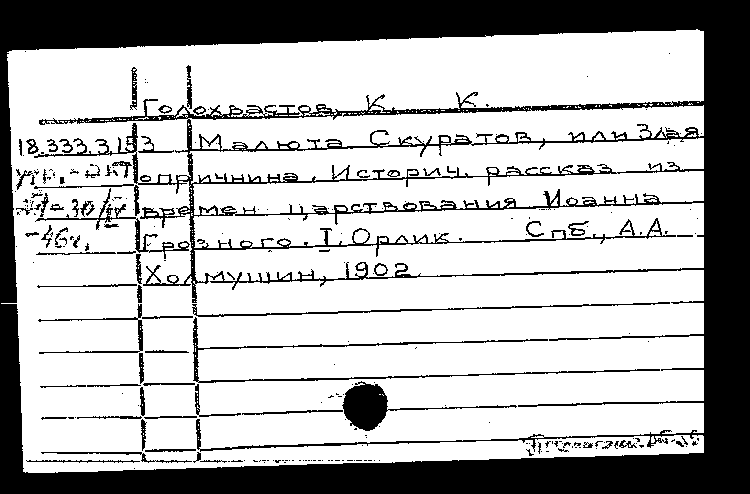 Голохвастов, К. К.
18.333.3.153 Малюта Скуратов, или Злая
утр.-акт опричнина. Историч. рассказ из
30/IV времен царствования Иоанна
-46г. Грозного. I. Орлик. Спб., А.А.
Холмушин, 1902